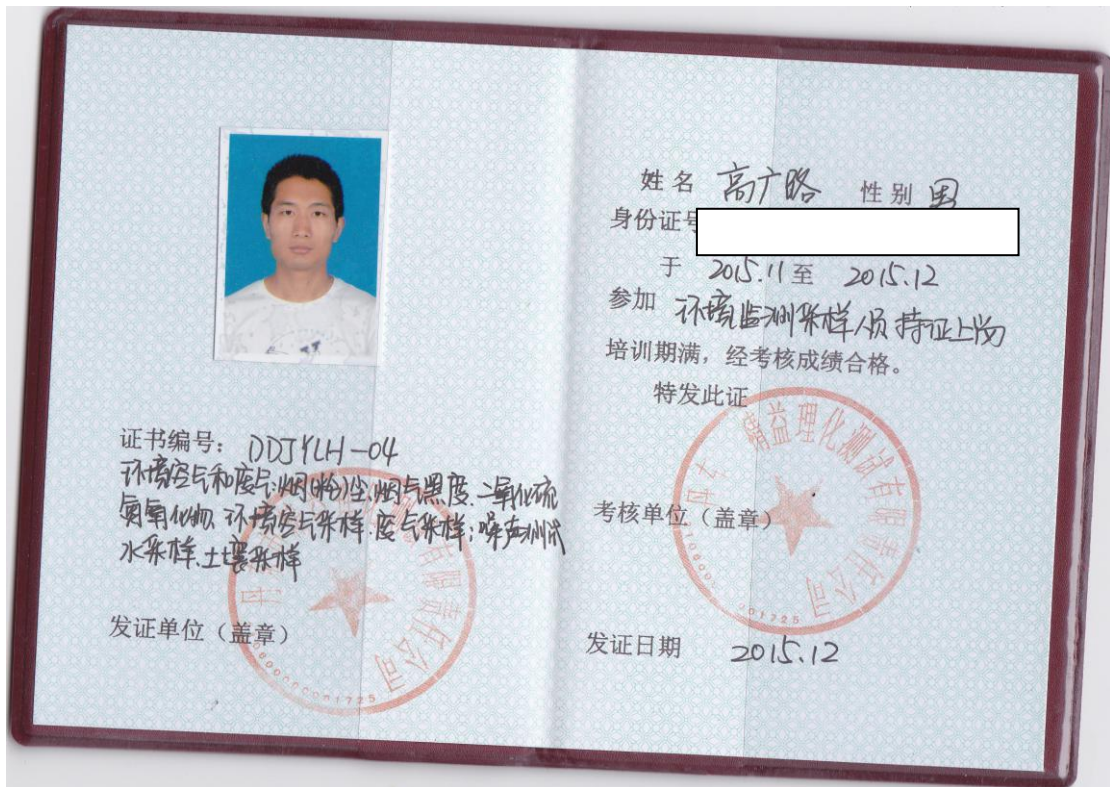 证书编号: DDJYLH-04
环境空气和废气:烟(粉)尘、烟气黑度、二氧化硫
氮氧化物、环境空气采样、废气采样;噪声测试
水采样、土壤采样
发证单位(盖章)
有限责任公司
0000000001725
姓名 高广路 性别 男
身份证号
于 2015.11 至 2015.12
参加 环境监测采样人员持证上岗
培训期满,经考核成绩合格。
特发此证
考核单位(盖章)
精益理化测试有限责任公司
001725
发证日期 2015.12